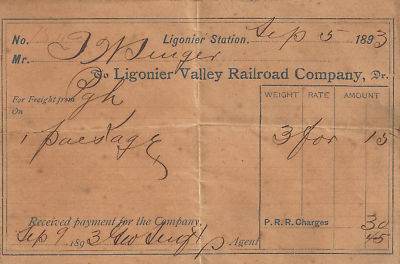 No. Ligonier Station. Sep 5 1893
Mr.
To Ligonier Valley Railroad Company, Dr.
For Freight from Pgh
On
1 package
WEIGHT RATE AMOUNT
3 for 15
P. R. R. Charges 30
45
Received payment for the Company,
Sep 9 1893 Agent